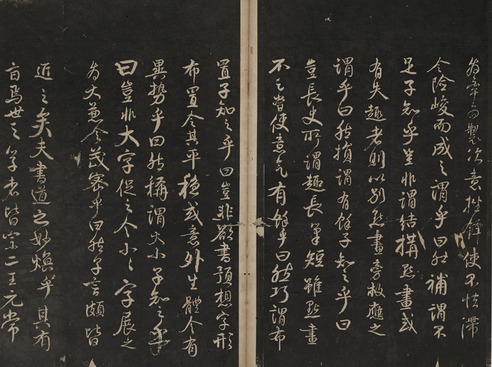 意挫鋒使不怯滯
令險峻而成之謂乎曰然補謂不
足子知乎豈非謂結構點畫或
有失趣者則以別點畫旁救應之
謂乎曰然損謂有餘子知之乎曰
豈長史所謂趣長筆短雖點畫
不足常使意氣有餘乎曰然巧謂布
置子知之乎曰豈非欲書預想字形
布置令其平穩或意外生體令有
異勢乎曰然稱謂大小子知之乎
曰豈非大字促之令小小字展之
為大兼令茂密乎曰然子言頗皆
近之矣夫書道之妙煥乎其有
旨焉世之學者皆宗二王元常